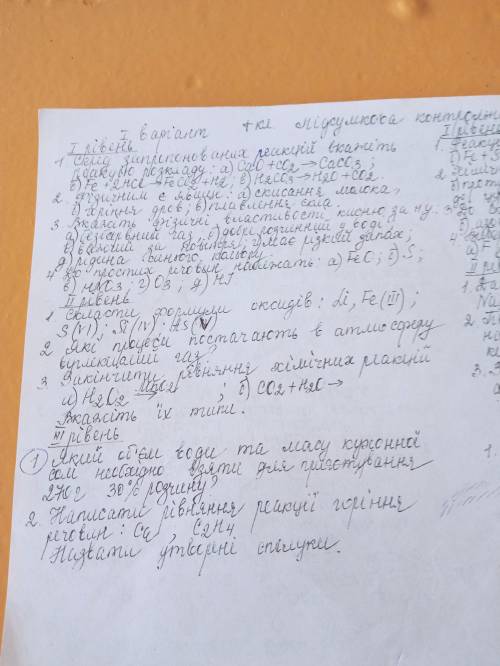 І варіант 7 кл. Підсумкова контрольна
І рівень
1. Серед запропонованих реакцій вкажіть
реакцію розкладу: а) CaO + CO2 → CaCO3;
б) Fe + 2HCl → FeCl2 + H2; в) H2CO3 → H2O + CO2.
2. Фізичним є явище: а) скисання молока,
б) горіння дров; в) плавлення скла.
3. Вкажіть фізичні властивості кисню за н.у.
а) безбарвний газ; б) добре розчинний у воді;
в) важчий за повітря; г) має різкий запах;
д) рідина блакитного кольору.
4. До простих речовин належать: а) FeO; б) S;
в) HNO3; г) O3; д) HI
ІІ рівень
1. Скласти формули оксидів: Li, Fe(III);
S(VI); Ti(IV); As(V)
2. Які процеси постачають в атмосферу
вуглекислий газ?
3. Закінчити рівняння хімічних реакцій
а) H2O2 MnO2→ ; б) CO2 + H2O →
Вкажіть їх типи.
ІІІ рівень
1 Який об'єм води та масу кухонної
солі необхідно взяти для приготування
270 г 30% розчину?
2. Написати рівняння реакції горіння
речовин: Ca, C2H4
Назвати утворені сполуки.